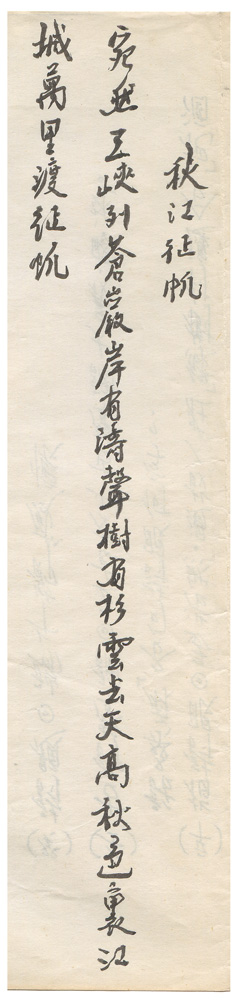 秋江征帆
宛然三峽列蒼巖岸有濤聲樹有杉雲去天高秋色裏江
城萬里渡征帆